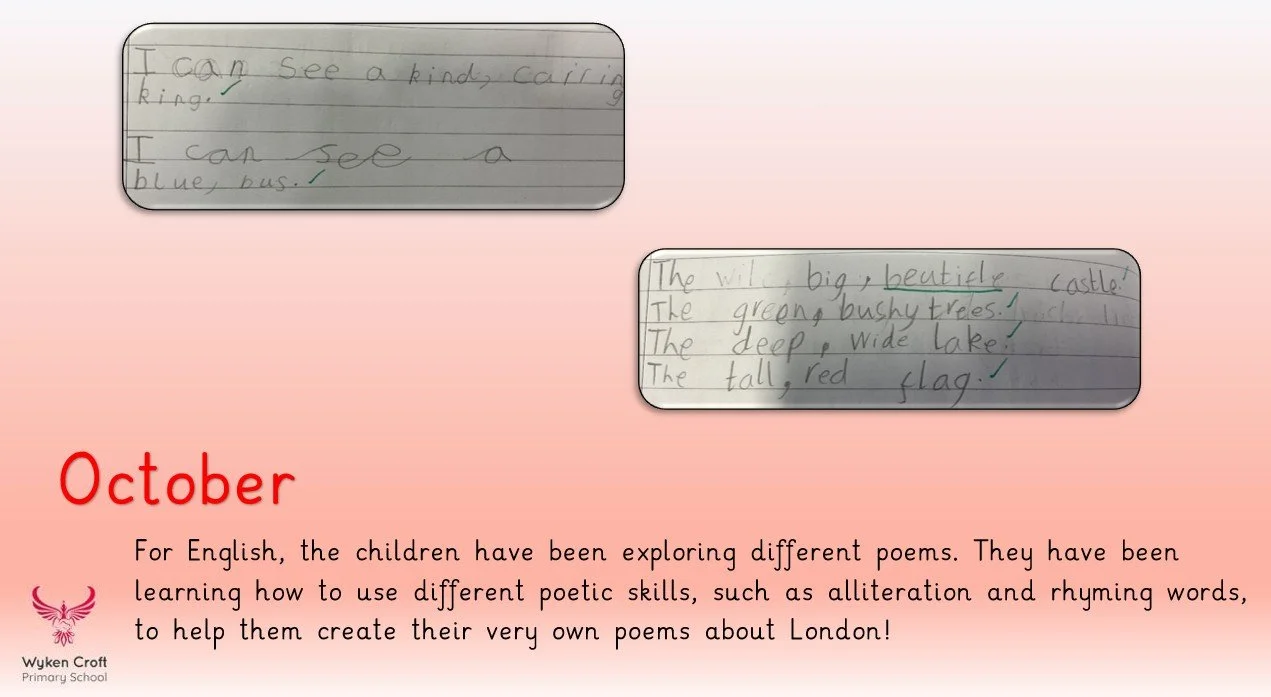 I can see a kind, cairing
king.
I can see a
blue, bus.
The big, beuticle castle!
The green, bushy trees.
The deep, wide lake.
The tall, red flag.
October
For English, the children have been exploring different poems. They have been
learning how to use different poetic skills, such as alliteration and rhyming words,
to help them create their very own poems about London!
Wyken Croft
Primary School